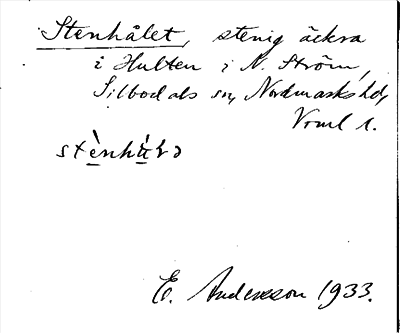 Stenhålet, stenig åkra
i Hulten i N. Ström,
Silbodals sn, Nordmarks hd,
Vrml l.
E. Andersson 1933.